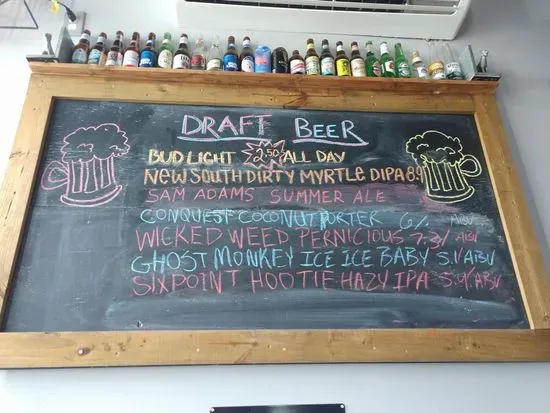 DRAFT BEER
BUD LIGHT 2.50 ALL DAY
NEW SOUTH DIRTY MYRTLE DIPA 8.9
SAM ADAMS SUMMER ALE
CONQUEST COCONUT PORTER 6% ABV
WICKED WEED PERNICIOUS 7.3% ABV
GHOST MONKEY ICE ICE BABY 5.1% ABV
SIXPOINT HOOTIE HAZY IPA 5.9% ABV